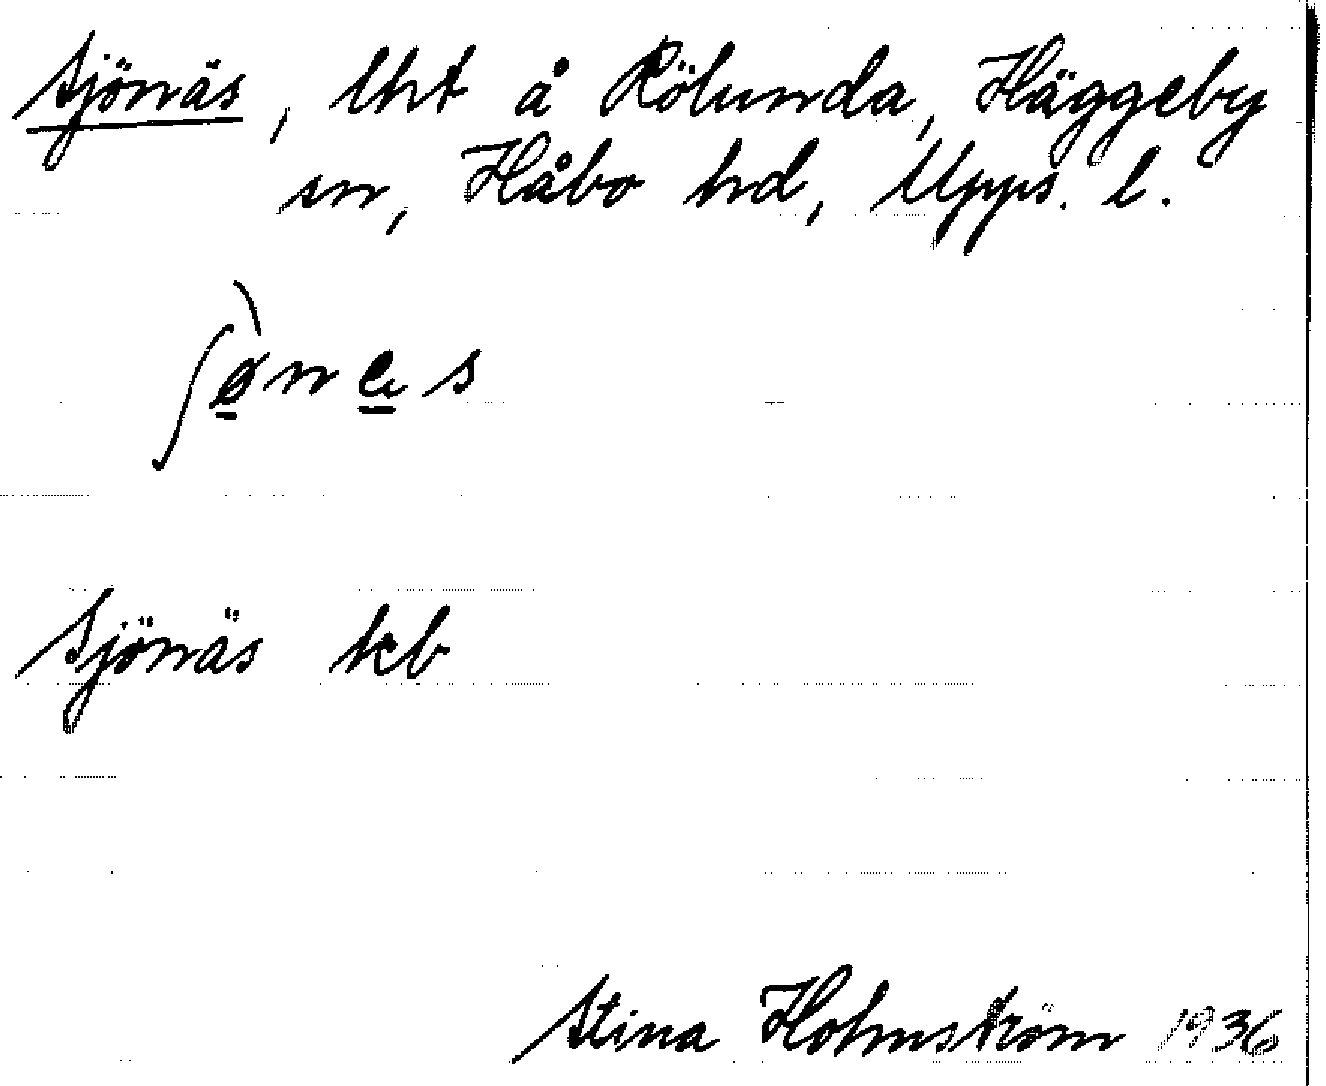 Sjönäs, lht å Rölunda, Häggeby
sn, Håbo hd, Upps. l.
ʃø̠̀næ̠s
Sjönäs kb
Stina Holmström 1936